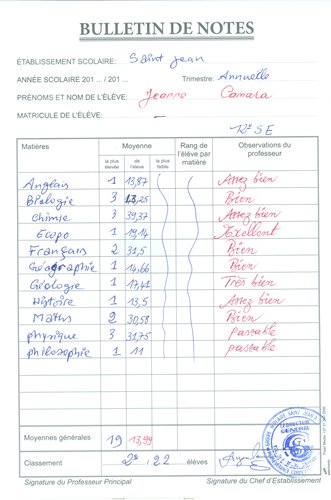 BULLETIN DE NOTES
ÉTABLISSEMENT SCOLAIRE: Saint Jean
ANNÉE SCOLAIRE 201 ... / 201 ... Trimestre: Annuelle
PRÉNOMS ET NOM DE L'ÉLÈVE: Jeanne Camara
MATRICULE DE L'ÉLÈVE: —
12e SE
Matières Moyenne Rang de l'élève par matière Observations du professeur
la plus élevée de l'élève la plus faible
Anglais 1 13,87 Assez bien
Biologie 3 43,25 Bien
Chimie 3 39,37 Assez bien
Ecopo 1 19,14 Exellent
Français 2 31,5 Bien
Géographie 1 14,66 Bien
Géologie 1 17,41 Très bien
Histoire 1 13,5 Assez bien
Maths 2 30,58 Bien
physique 3 31,75 passable
philosophie 1 11 passable
Moyennes générales 19 13,99
LE DIRECTEUR GENERAL
Classement 2e / 22 élèves
Signature du Professeur Principal Signature du Chef d'Etablissement